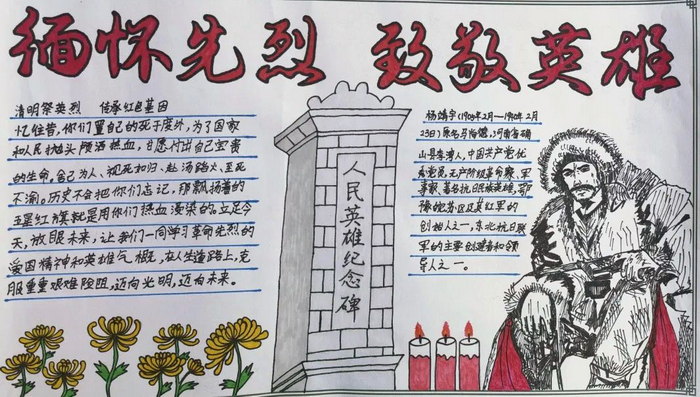 缅怀先烈 致敬英雄
清明祭英烈 传承红色基因
忆往昔,你们置自己的死于度外,为了国家
和人民抛头颅洒热血,甘愿付出自己宝贵
的生命。舍己为人、视死如归、赴汤蹈火、至死
不渝。历史不会把你们忘记,那飘扬着的
五星红旗就是用你们热血浸染的。立足今
天,放眼未来,让我们一同学习革命先烈的
爱国精神和英雄气概,在人生道路上,克
服重重艰难险阻,迈向光明,迈向未来。
人民英雄纪念碑
杨靖宇(1905年2月—1940年2月
23日)原名马尚德,河南省确
山县李湾人,中国共产党优
秀党员,无产阶级革命家、军
事家、著名抗日民族英雄,鄂
豫皖苏区及其红军的
创始人之一,东北抗日联
军的主要创建者和领
导人之一。